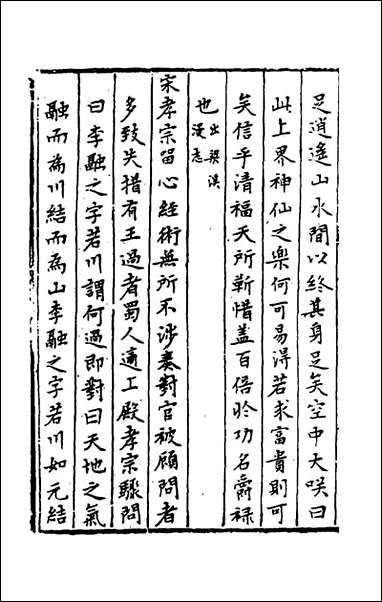 足逍遙山水間以終其身足矣空中大咲曰
此上界神仙之樂何可易得若求富貴則可
矣信乎清福天所靳惜蓋百倍於功名爵禄
也出梁溪
漫志
宋孝宗留心經術無所不涉奏對官被顧問者
多致失措有王過者蜀人適上殿孝宗驟問
曰李融之字若川謂何過即對曰天地之氣
融而為川結而為山李融之字若川如元結